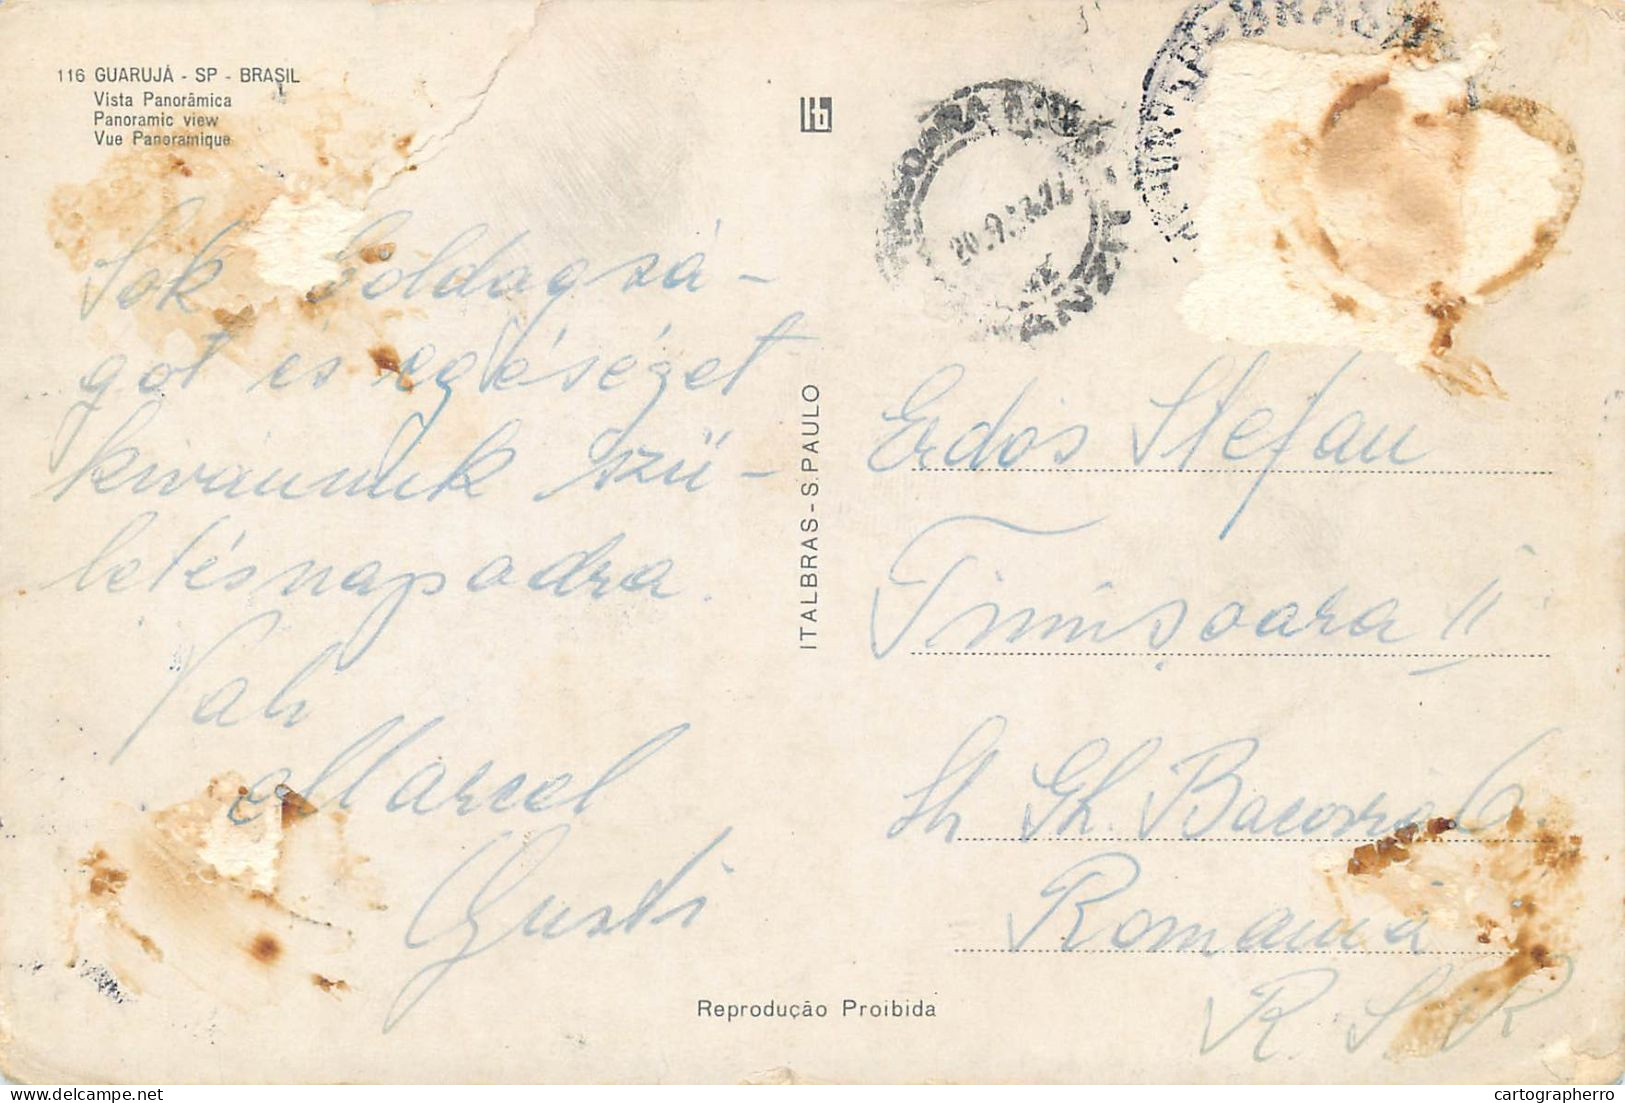 116 GUARUJÁ - SP - BRASIL
Vista Panorâmica
Panoramic view
Vue Panoramique
Sok Boldogsá-
got és egéséget
kivánunk szü-
letésnapodra.
Vali
Marcel
Gusti
ITALBRAS - S. PAULO
BRASIL
Erdös Stefan
Timișoara II
Gh.
Romania
R. S. R
Reprodução Proibida
cartographerro